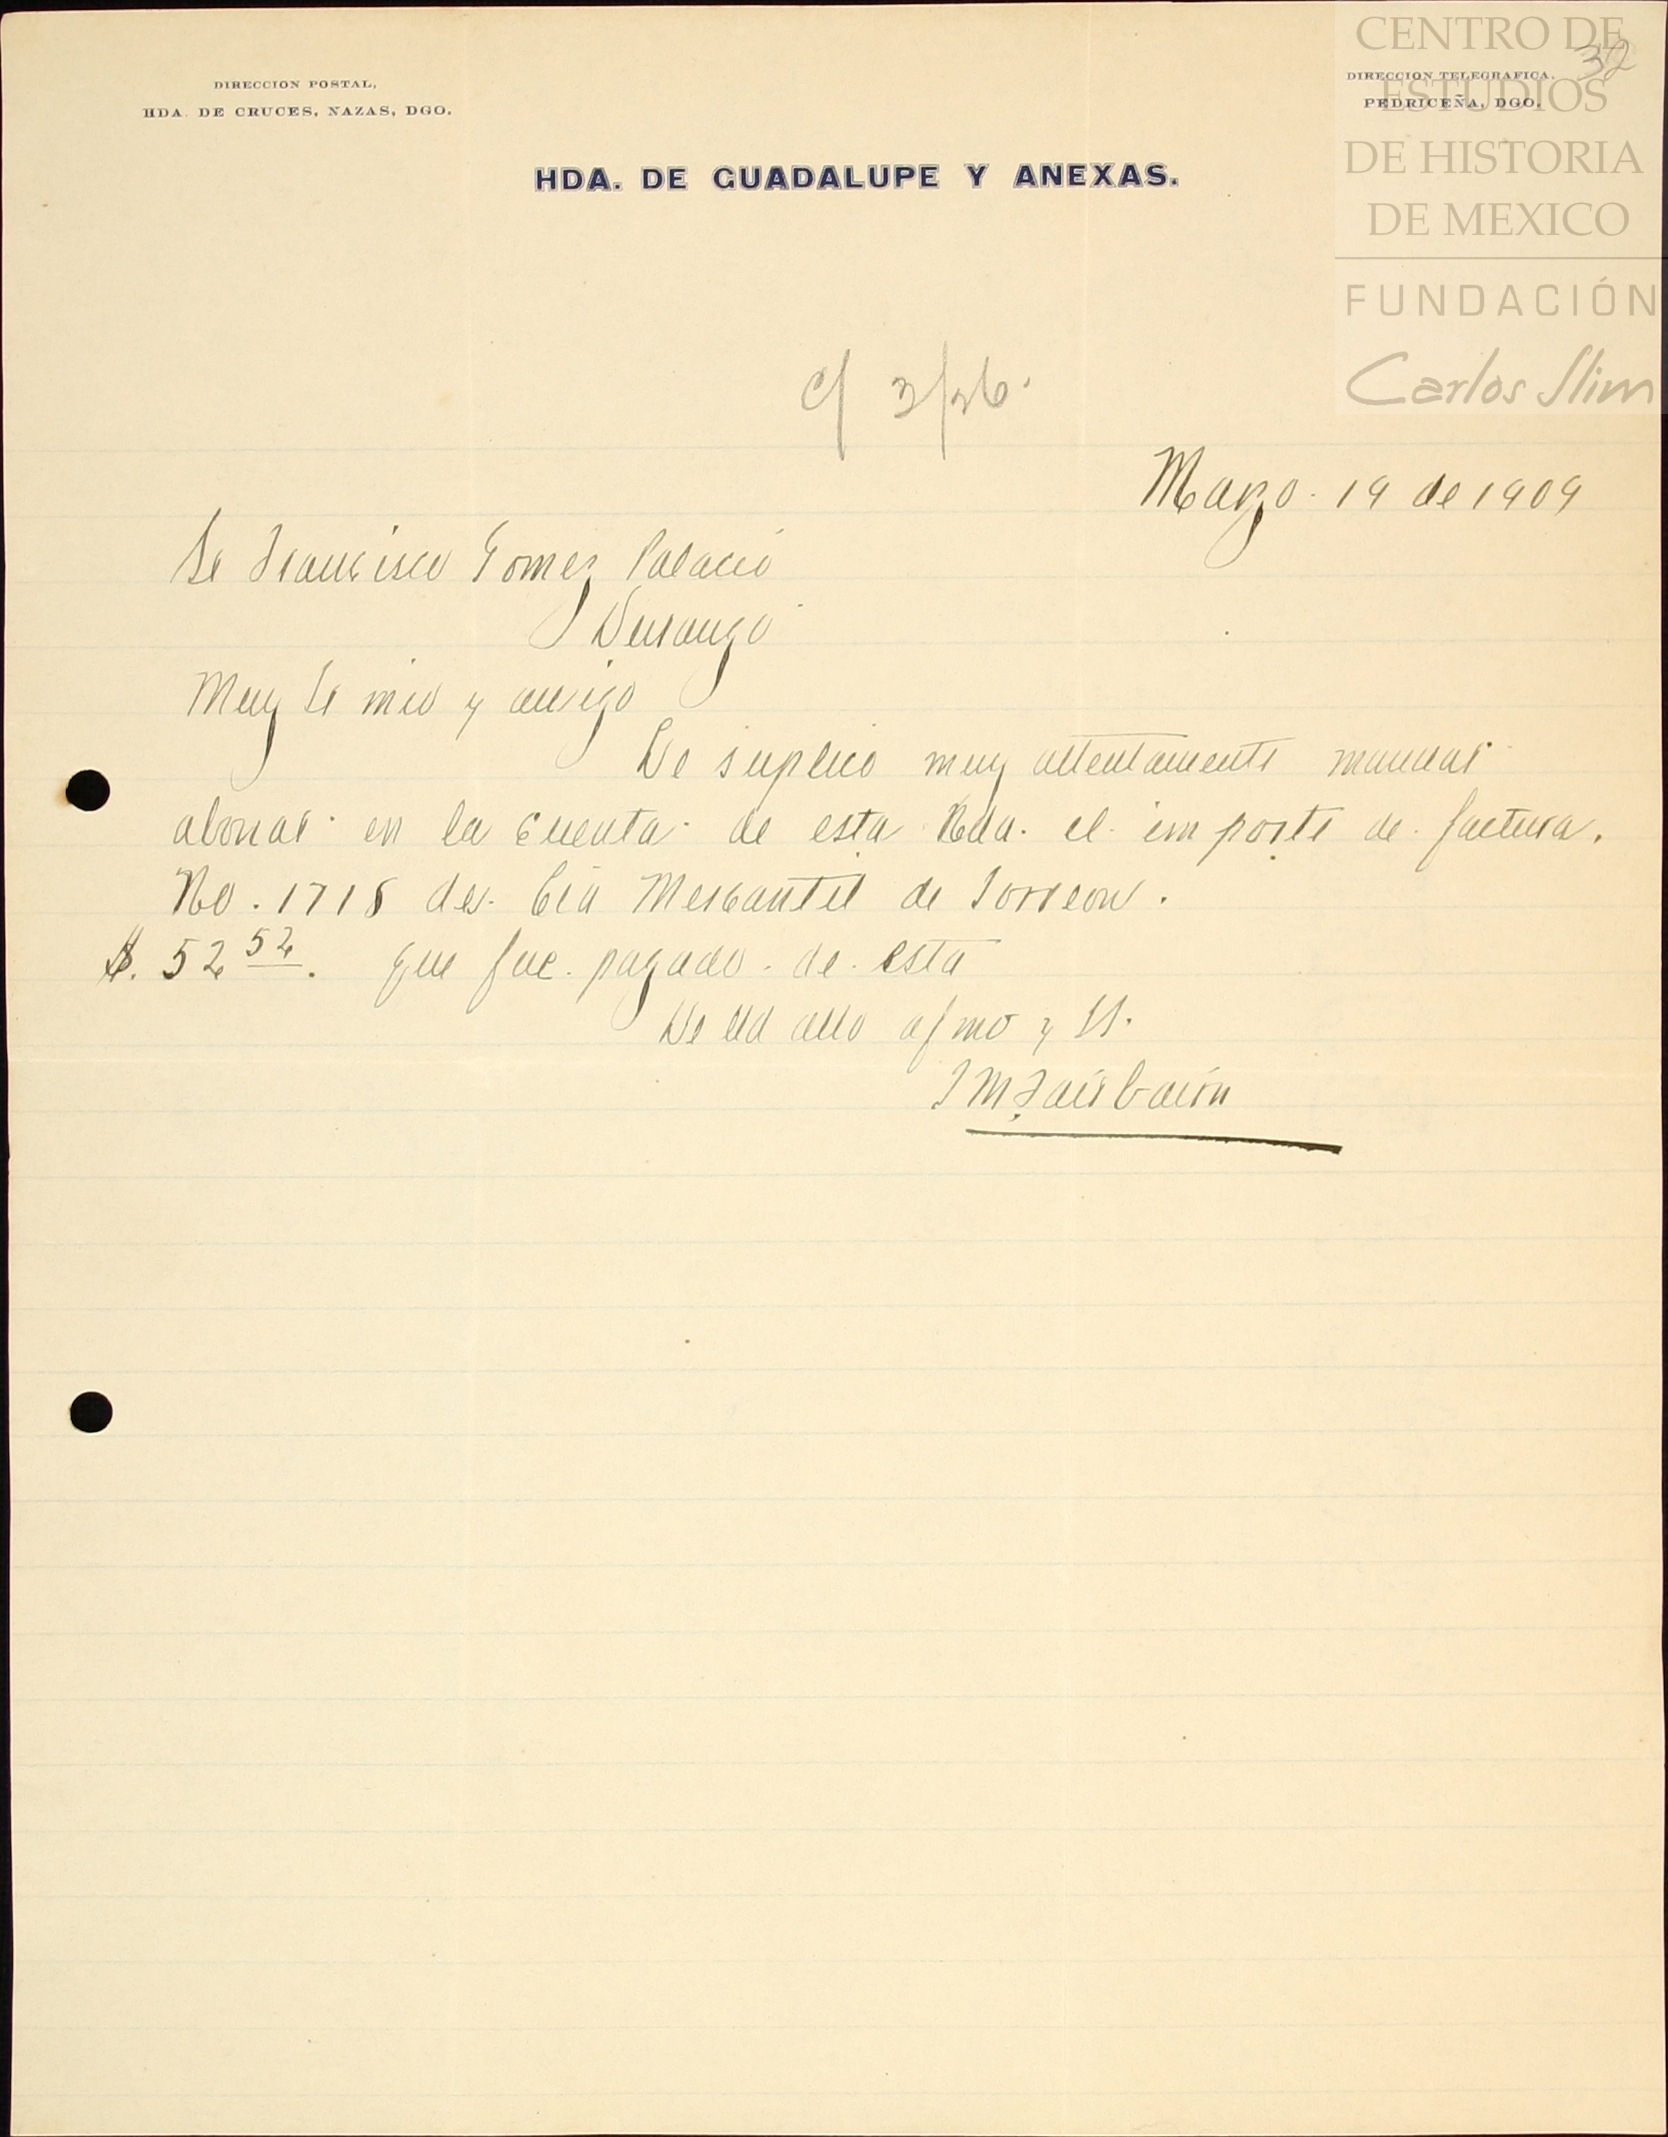 DIRECCION POSTAL,
HDA. DE CRUCES, NAZAS, DGO.
DIRECCION TELEGRAFICA.
PEDRICEÑA, DGO.
32
CENTRO DE
ESTUDIOS
DE HISTORIA
DE MEXICO
FUNDACIÓN
Carlos Slim
HDA. DE GUADALUPE Y ANEXAS.
c/ 3/26.
Marzo. 19 de 1909
Sr Francisco Gomez Palacio
Durango
Muy Sr mio y amigo
Le suplico muy attentamente mandar
abonar en la cuenta de esta Hda. el importe de factura.
No. 1718 de Cia Mercantil de Torreon.
$. 52 52. que fue pagado de esta
De Ud atto afmo y SS.
J M Fairbairn